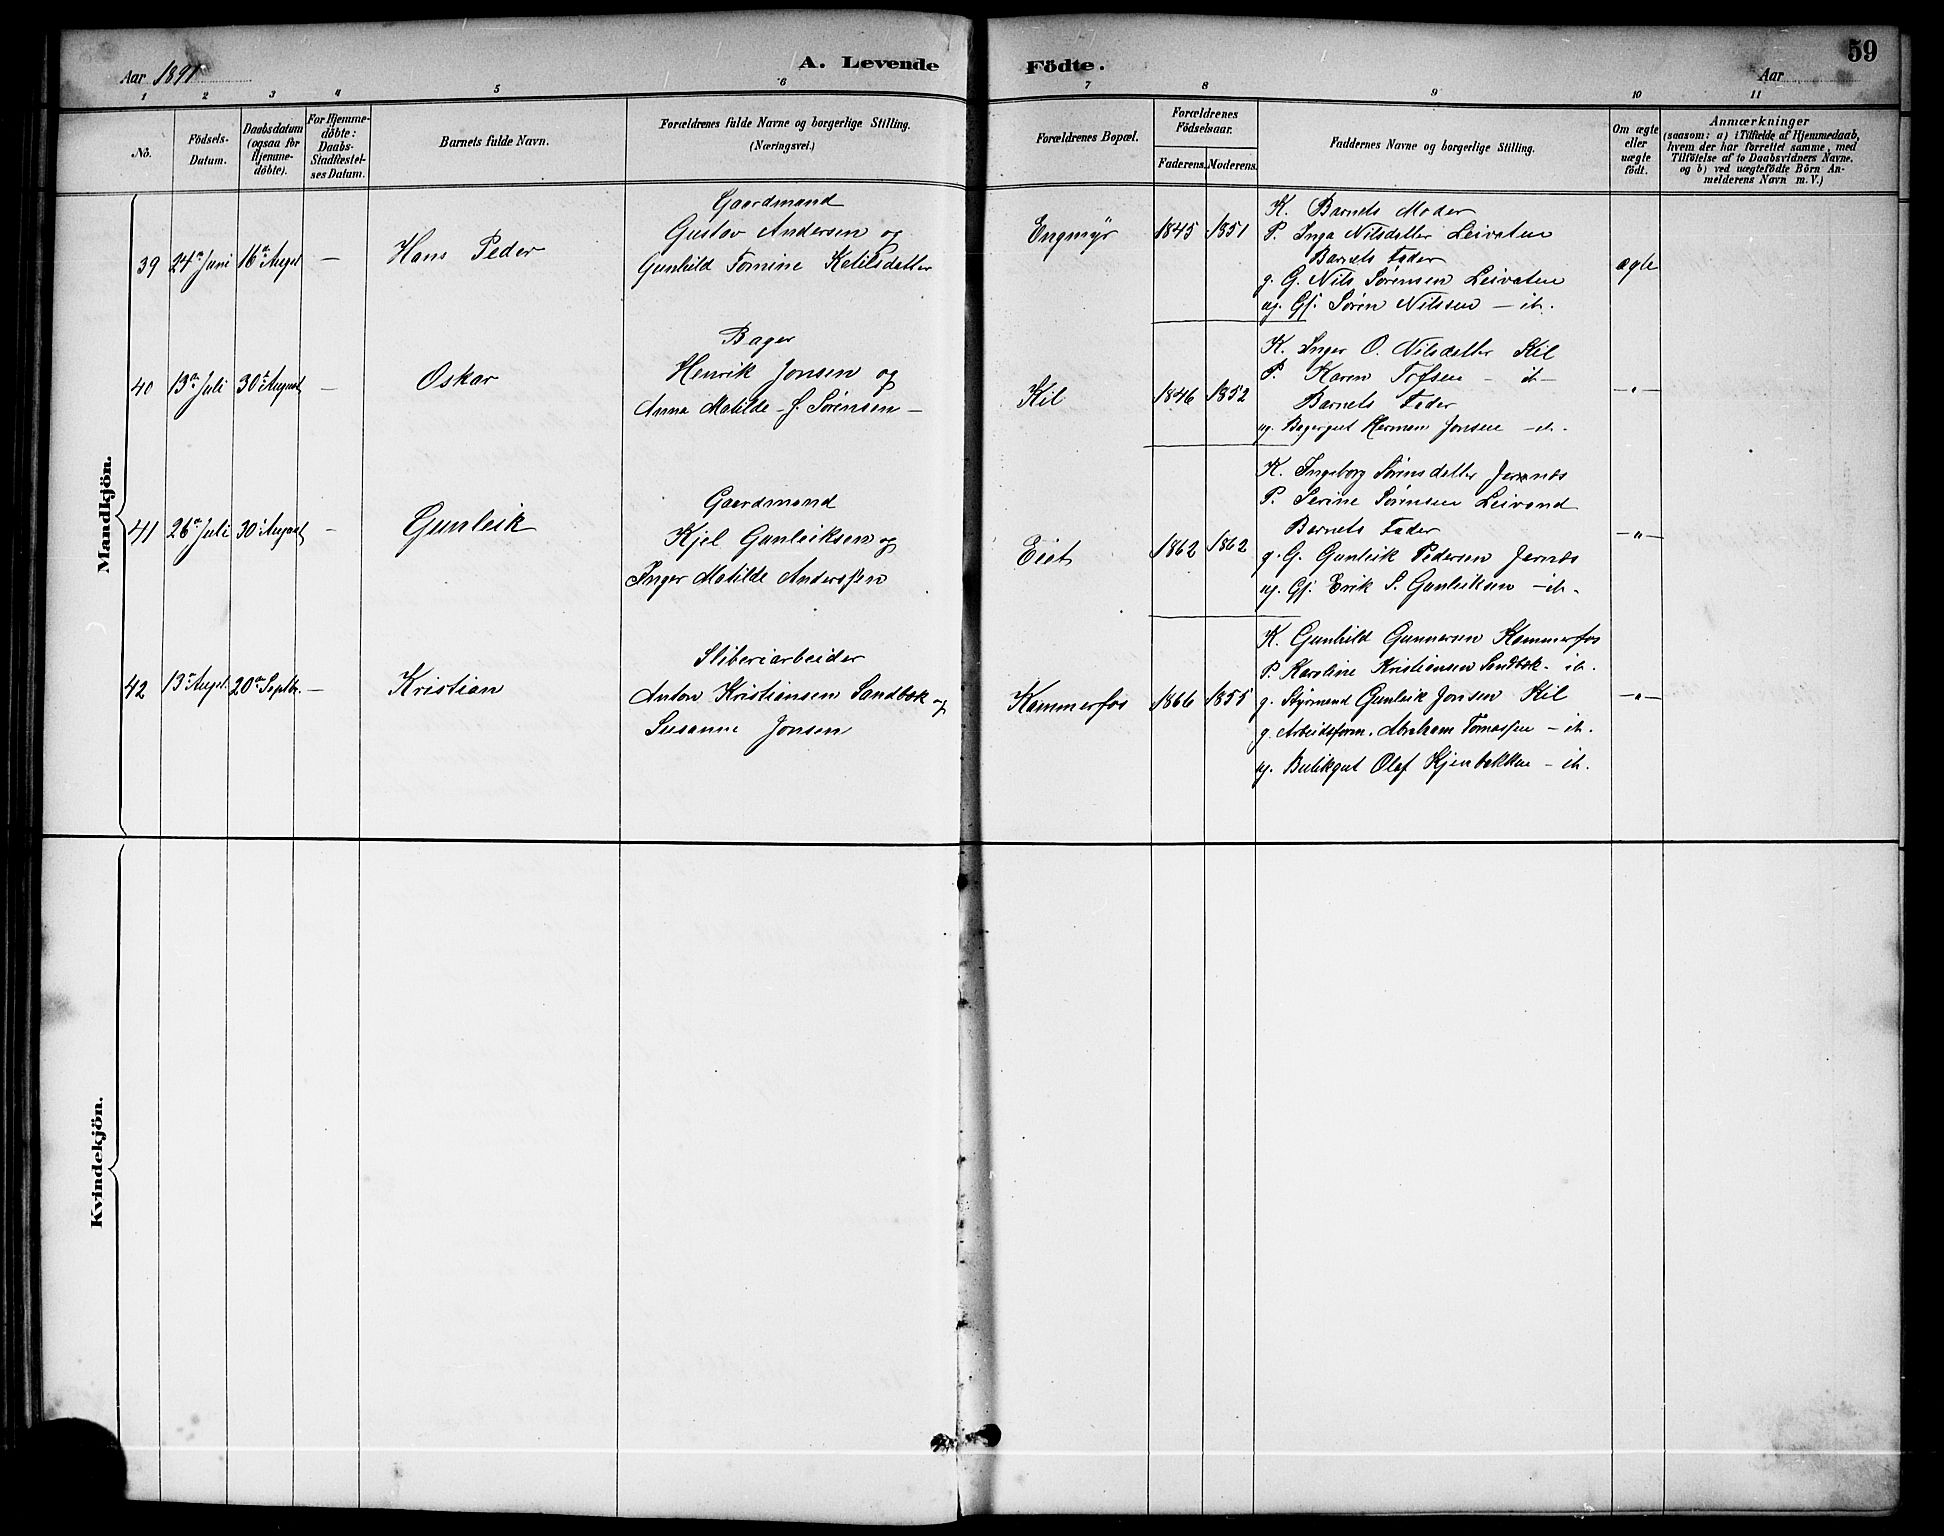 59
Aar 1891
A. Levende Födte.
Aar
1 2 3 4 5 6 7 8 9 10 11
No.
Födsels-
Datum.
Daabsdatum
(ogsaa for
Hjemme-
döbte).
For Hjemme-
döbte:
Daabs-
Stadfæstel-
ses Datum.
Barnets fulde Navn.
Forældrenes fulde Navne og borgerlige Stilling.
(Næringsvei.)
Forældrenes Bopæl.
Forældrenes
Födselsaar.
Faderens. Moderens.
Faddernes Navne og borgerlige Stilling.
Om ægte
eller
uægte
födt.
Anmærkninger
(saasom: a) i Tilfælde af Hjemmedaab,
hvem der har forrettet samme, med
Tilföielse af to Daabsvidners Navne,
og b) ved uægtefödte Börn An-
melderens Navn m. V.)
Mandkjön.
39
24de Juni
16de Augst
—
Hans Peder
Gaardmand
Gustav Andersen og
Gunhild Tomine Ketilsdatter
Engmyr
1845
1851
K. Barnets Moder
P. Inga Nilsdatter Leivatne
Barnets Fader
g. G. Nils Sørensen Leivatne
ug. Gf. Søren Nilssen — it.
ægte
40
13de Juli
30te August
—
Oskar
Bager
Henrik Jonsen og
Anna Matilde f. Sørensen —
Kil
1846
1852
K. Inger O. Nilsdatter Kil
P. Karen Tofsen — it —
Barnets Fader
ug. Bagergut Herman Jonsen — it.
—"—
41
26de Juli
30te August
—
Gunleik
Gaardmand
Kjel Gunleiksen og
Inger Matilde Anderssen
Eiet
1862
1862
K. Ingeborg Sørensdatter Jernæs
P. Serine Sørensen Leivand
Barnets Fader
g. G. Gunleik Pedersen Jernæs
ug. Gf. Erik S. Gunleiksen — it.
—"—
42
13de Augst.
20de Septbr.
—
Kristian
Sliberiarbeider
Anton Kristiansen Sandbak og
Susanne Jonsen
Kammerfos
1866
1855
K. Gunhild Gunnersen Kammerfos
P. Karoline Kristiansen Sandbak — it.
g. Styrmand Gunleik Jonsen Kil
g. Arbeidsform. Abraham Tomassen — it.
ug. Butikgut Olaf Kjenbakken — it.
—"—
Kvindekjön.